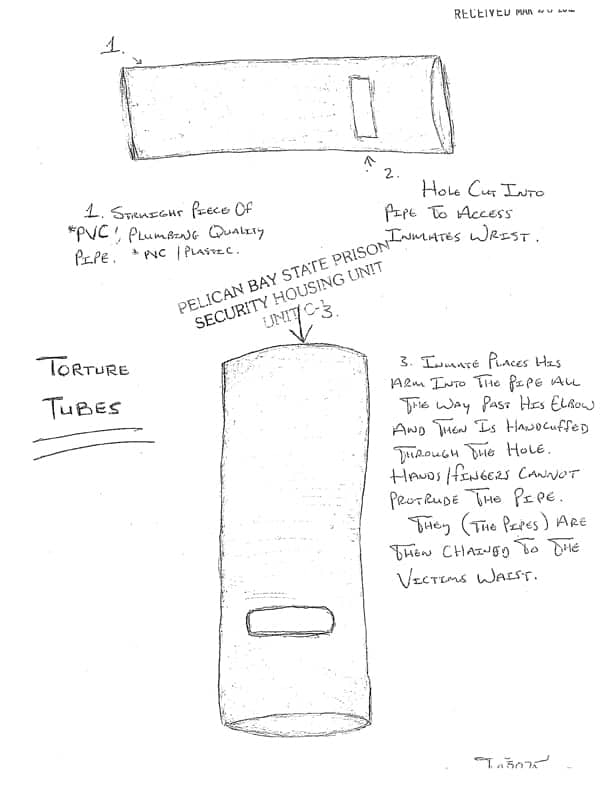 RECEIVED MAR
1.
2.
HOLE CUT INTO
PIPE TO ACCESS
INMATES WRIST.
1. STRAIGHT PIECE OF
*PVC, PLUMBING QUALITY
PIPE. * PVC / PLASTIC.
PELICAN BAY STATE PRISON
SECURITY HOUSING UNIT
UNIT C-
3.
TORTURE
TUBES
3. INMATE PLACES HIS
ARM INTO THE PIPE ALL
THE WAY PAST HIS ELBOW
AND THEN IS HANDCUFFED
THROUGH THE HOLE.
HANDS/FINGERS CANNOT
PROTRUDE THE PIPE.
THEY (THE PIPES) ARE
THEN CHAINED TO THE
VICTIMS WAIST.